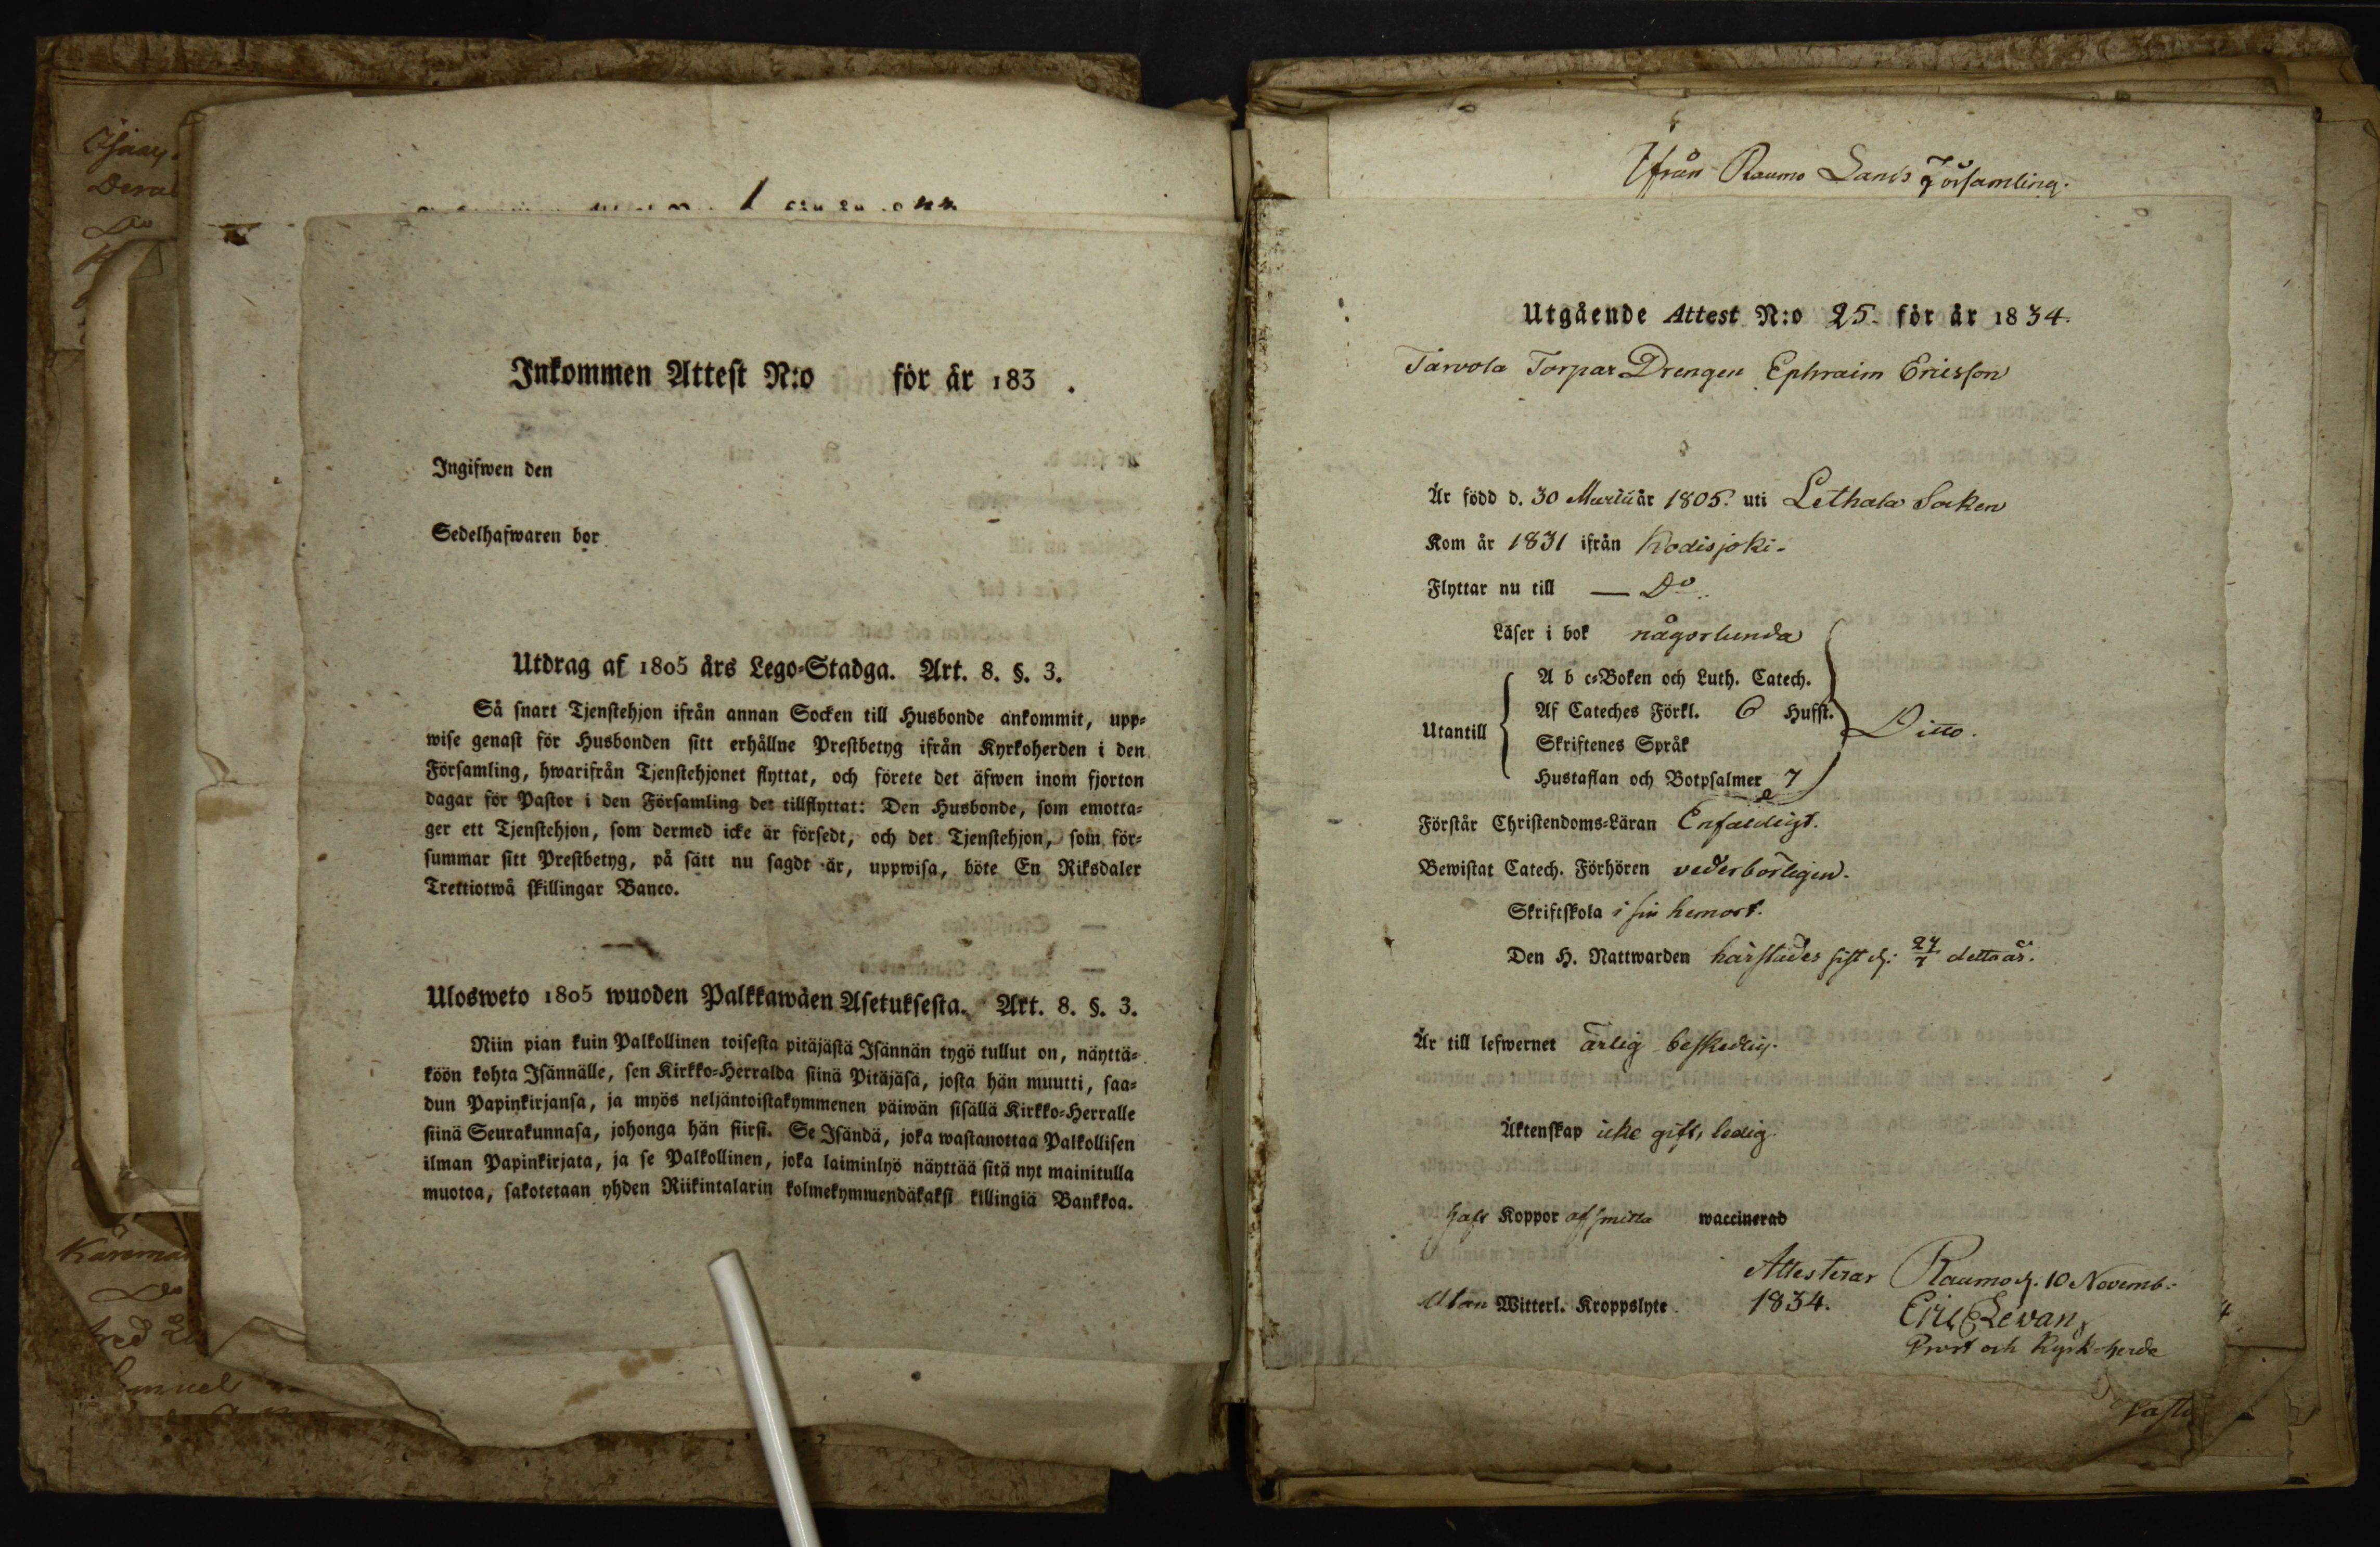 Inkommen Attest N:o för år 183 .
Ingifwen den
Sedelhafwaren bor
Utdrag af 1805 års Lego-Stadga. Art. 8. §. 3.
Så snart Tjenstehjon ifrån annan Socken till Husbonde ankommit, upp-
wise genast för Husbonden sitt erhållne Prestbetyg ifrån Kyrkoherden i den
Församling, hwarifrån Tjenstehjonet flyttat, och förete det äfwen inom fjorton
dagar för Pastor i den Församling det tillflyttat: Den Husbonde, som emotta-
ger ett Tjenstehjon, som dermed icke är försedt, och det Tjenstehjon, som för-
summar sitt Prestbetyg, på sätt nu sagdt är, uppwisa, böte En Riksdaler
Trettiotwå skillingar Banco.
Ulosweto 1805 wuoden Palkkawäen Asetuksesta. Art. 8. §. 3.
Niin pian kuin Palkollinen toisesta pitäjästä Isännän tygö tullut on, näyttä-
köön kohta Isännälle, sen Kirkko-Herralda siinä Pitäjäsä, josta hän muutti, saa-
dun Papinkirjansa, ja myös neljäntoistakymmenen päiwän sisällä Kirkko-Herralle
siinä Seurakunnasa, johonga hän siirsi. Se Isändä, joka wastanottaa Palkollisen
ilman Papinkirjata, ja se Palkollinen, joka laiminlyö näyttää sitä nyt mainitulla
muotoa, sakotetaan yhden Riikintalarin kolmekymmendäkaksi killingiä Bankkoa.
Kåremä
Do
Ifrån Raumo Lands Församling.
Utgående Attest N:o 25. för år 1834.
Tarvola Torpar Drengen Ephraim Ericsson
Är född d. 30 Martii år 1805. uti Lethala Soken
Kom år 1831 ifrån Kodisjoki.
Flyttar nu till — Do.
Läser i bok någorlunda
A b c-Boken och Luth. Catech.
Utantill Af Cateches Förkl. 6 Hufst. Ditto.
Skriftenes Språk
Hustaflan och Botpsalmer 7
Förstår Christendoms-Läran Enfaldigt.
Bewistat Catech. Förhören vederbörligen.
Skriftskola i sin hemort.
Den H. Nattwarden härstädes sist d. 27/7 detta år.
Är till lefwernet ärlig beskedlig.
Äktenskap icke gift, ledig.
Haft Koppor af smitta waccinerad
Attesterar Raumo d. 10 Novemb.
Utan Witterl. Kroppslyte. 1834. Eric Levan,
Prost och Kyrkoherde